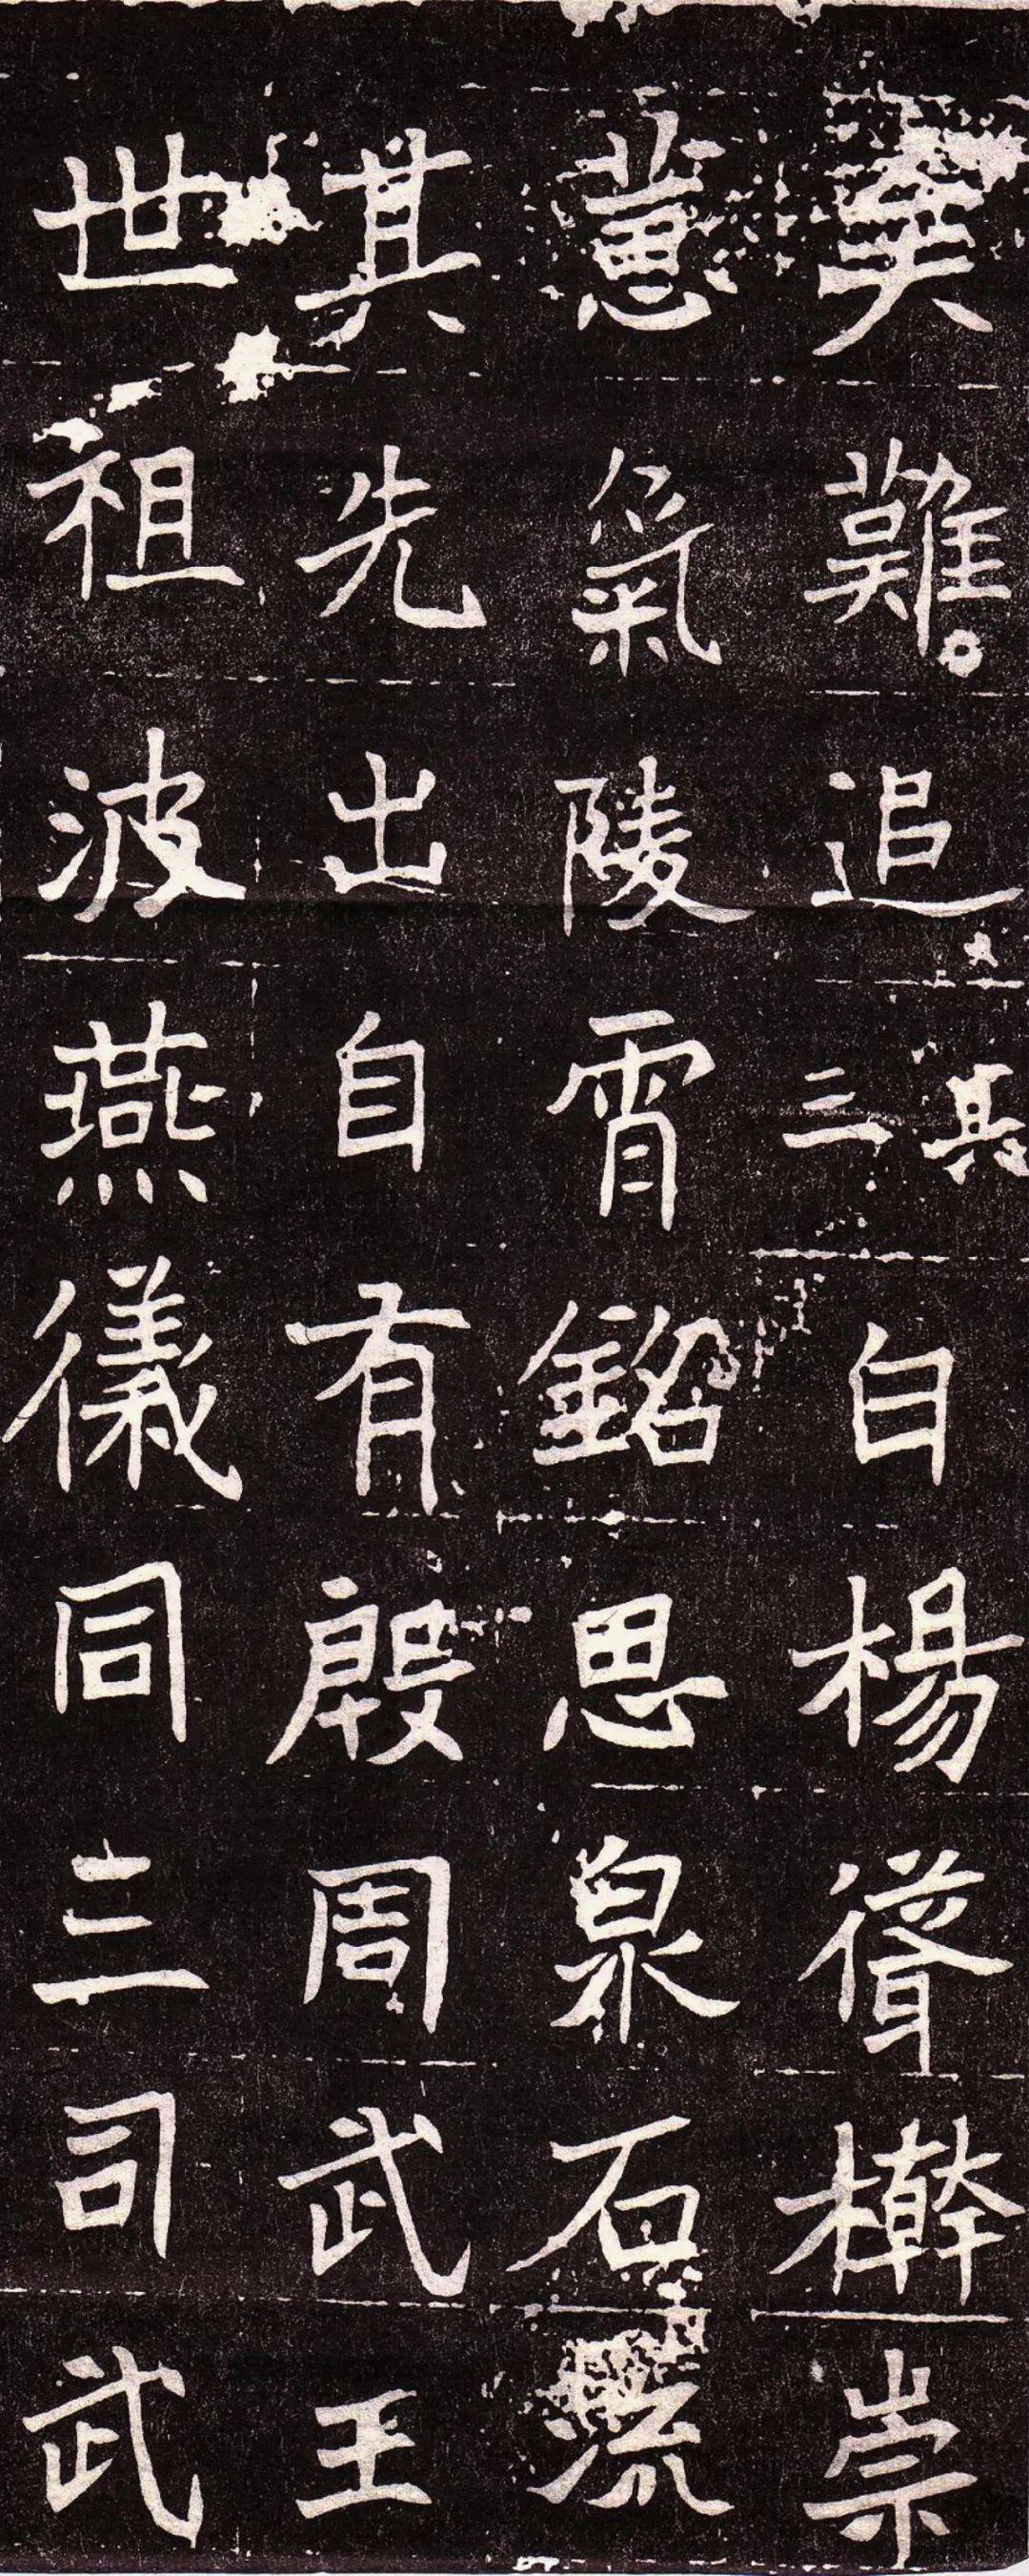 難追其三白楊聳檊崇
蕙氣陵霄銘思泉石流
其先出自有殷周武王
世祖波燕儀同三司武